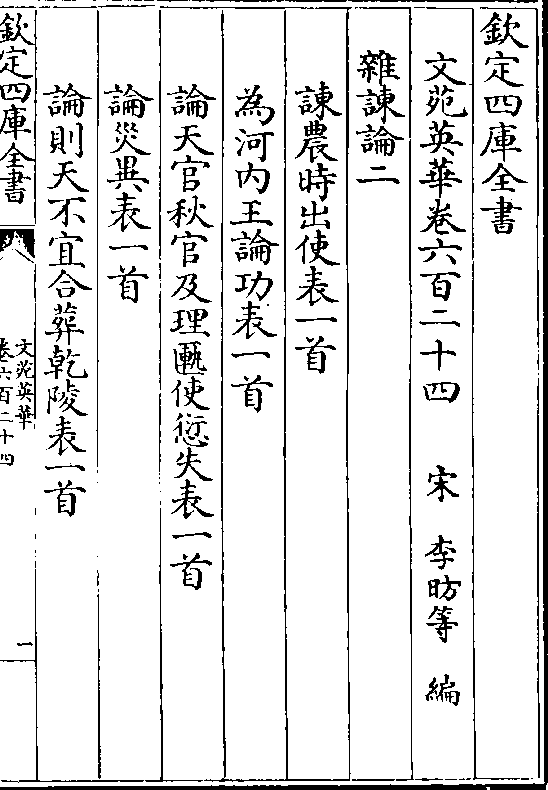 欽定四庫全書
文苑英華卷六百二十四　宋　李昉等　編
雜諫論二
諫農時出使表一首
為河内王論功表一首
論天官秋官及理匭使愆失表一首
論災異表一首
論則天不宜合葬乾陵表一首
欽定四庫全書
文苑英華
卷六百二十四
一